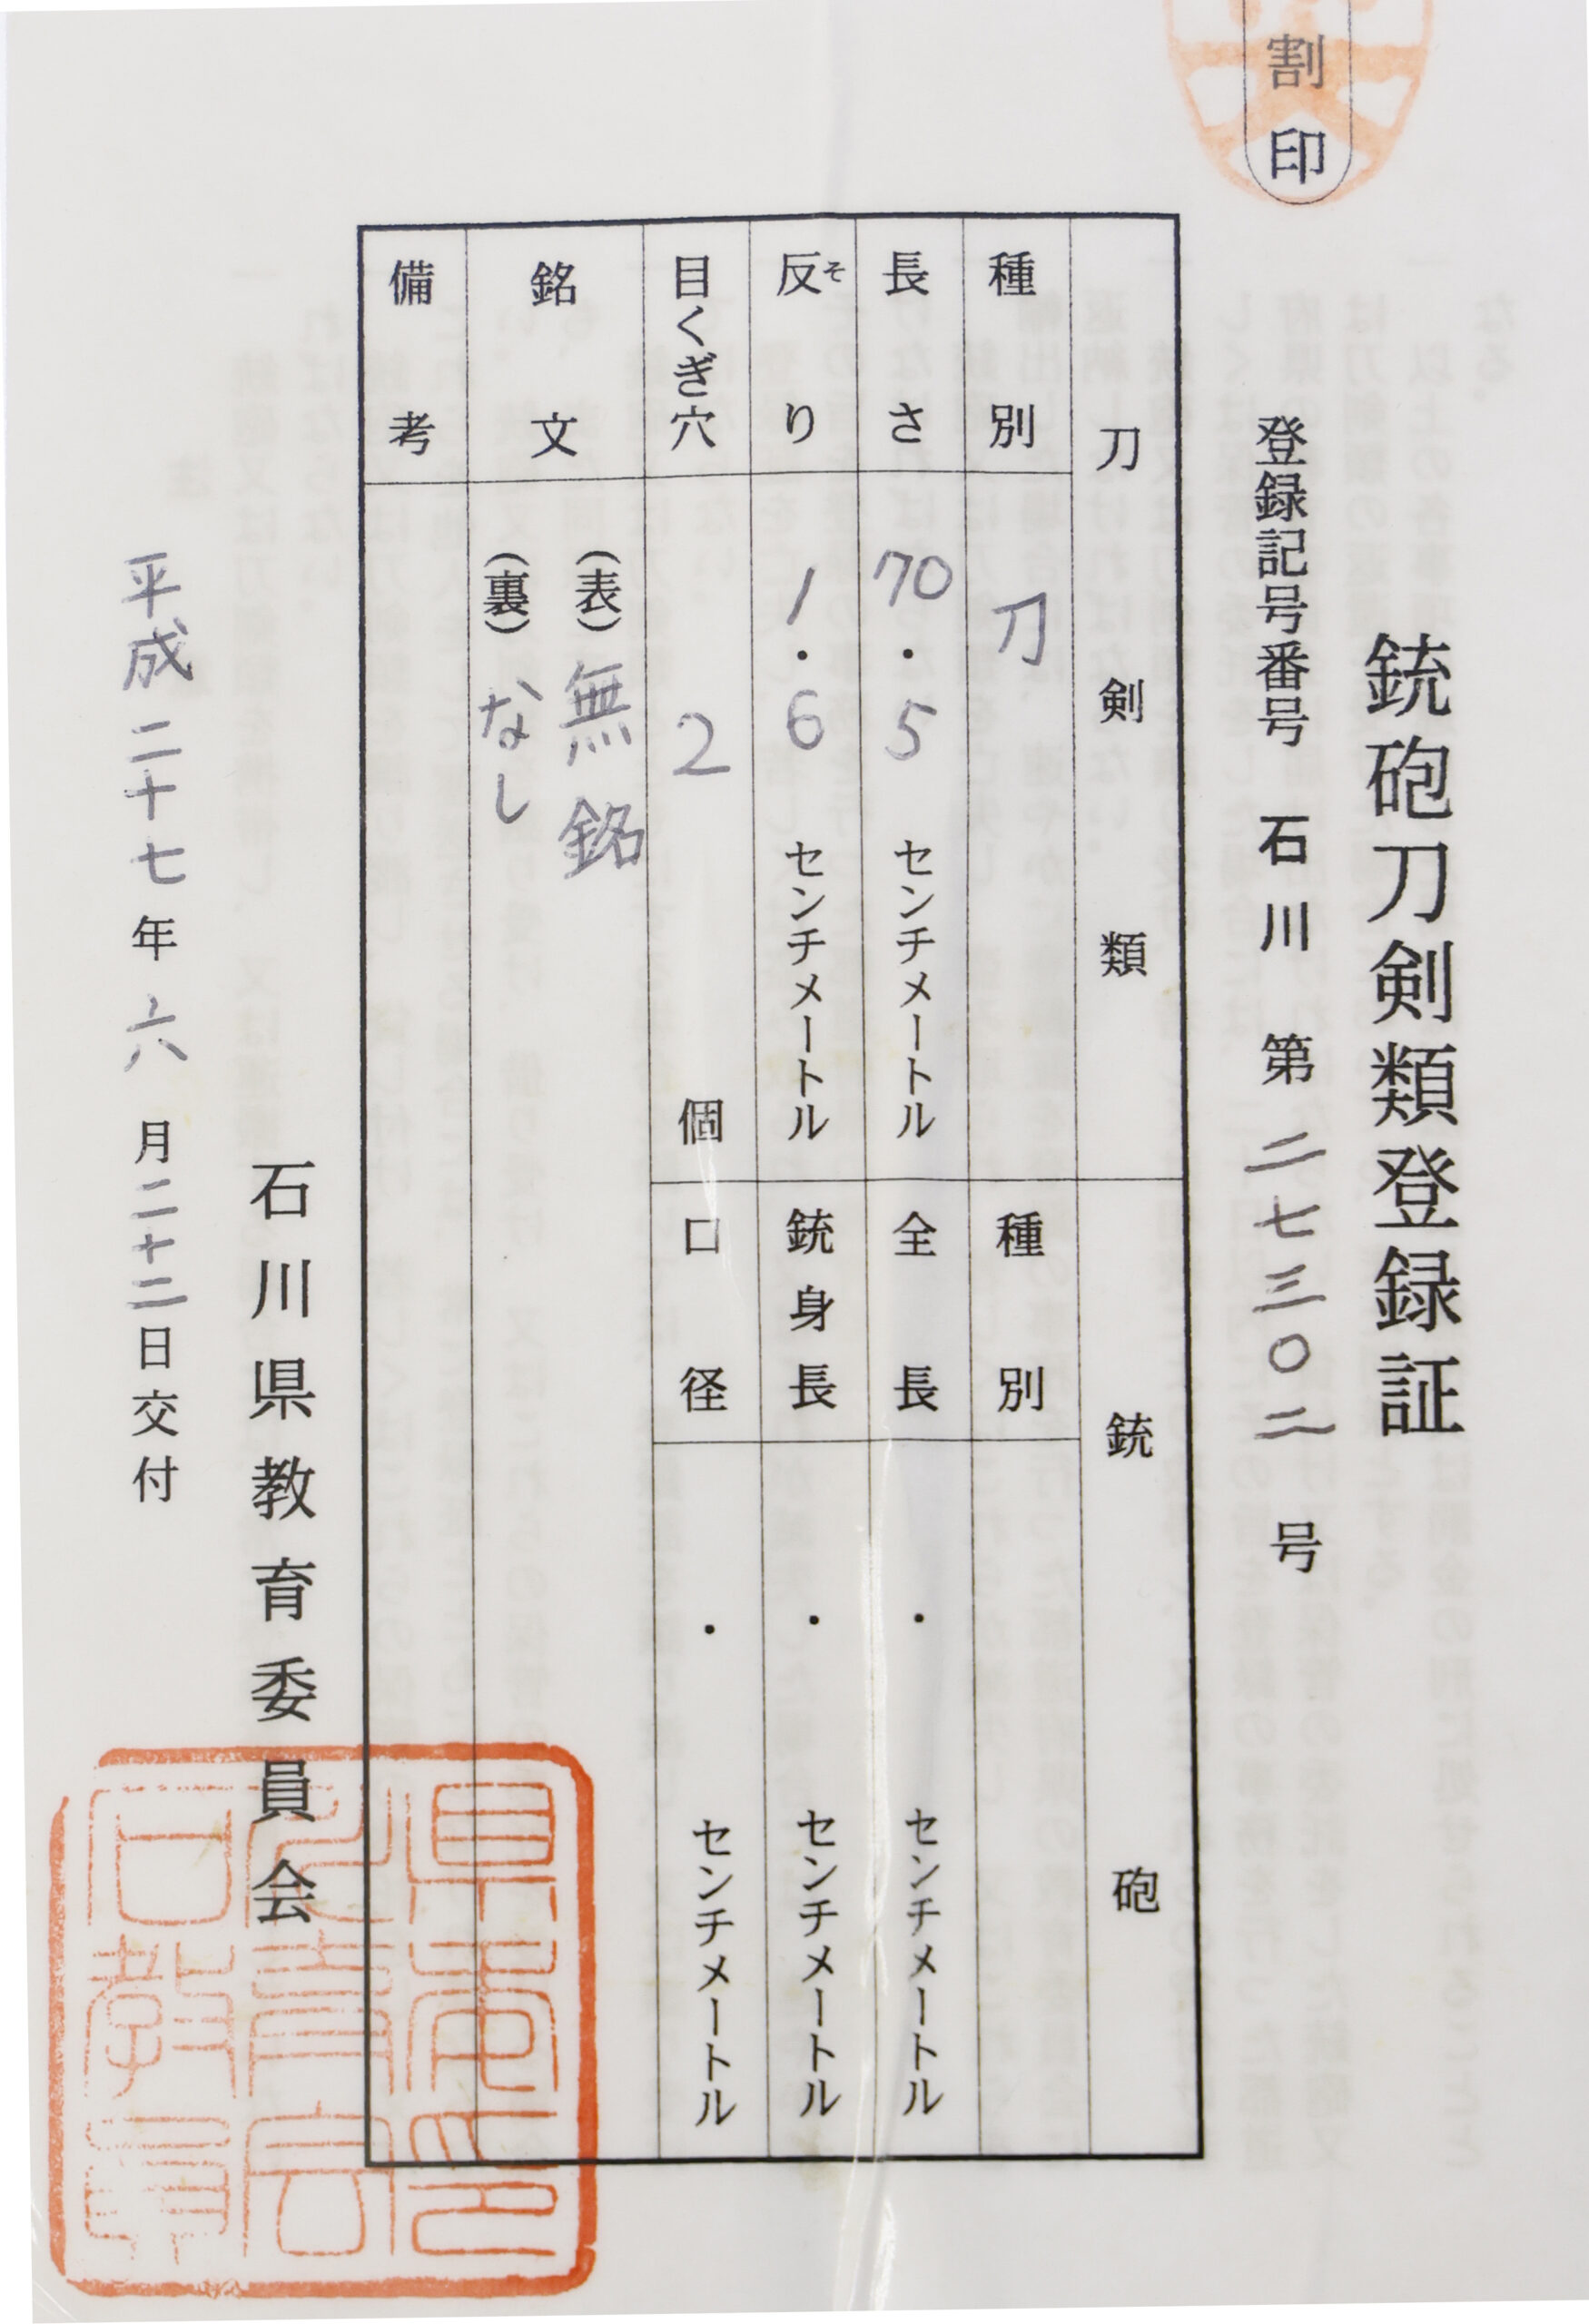 割印
銃砲刀剣類登録証
登録記号番号 石川 第二七三〇二号
刀剣類
銃砲
種別 刀
種別
長さ 70.5 センチメートル
全長 ・ センチメートル
反り そ 1.6 センチメートル
銃身長 ・ センチメートル
目くぎ穴 2 個
口径 ・ センチメートル
銘文 (表) 無銘
(裏) なし
備考
石川県教育委員会
平成二十七年六月二十二日交付